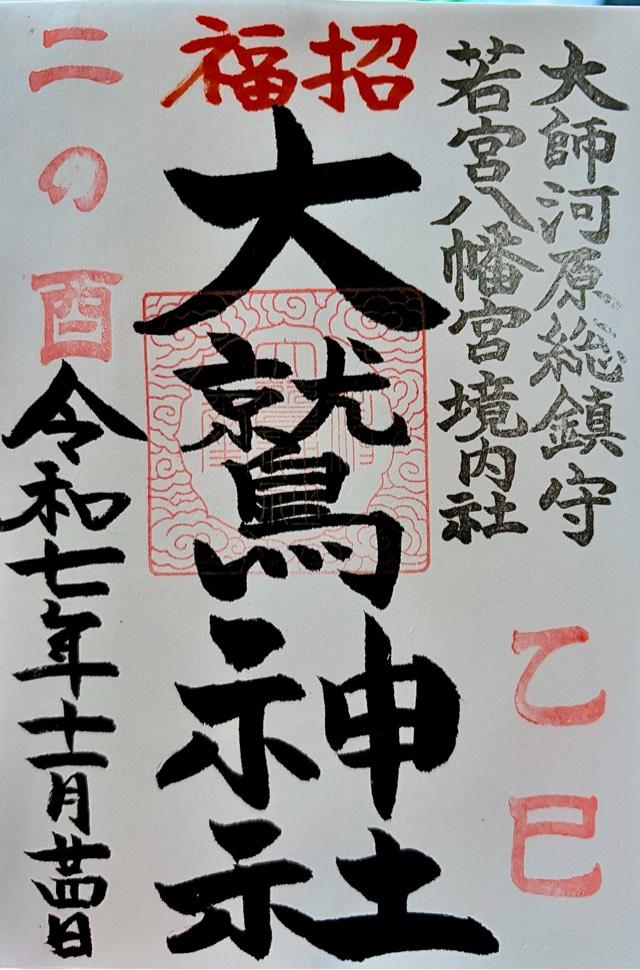 大師河原総鎮守
若宮八幡宮境内社
乙巳
招福
大鷲神社
二の酉
令和七年十一月廿四日